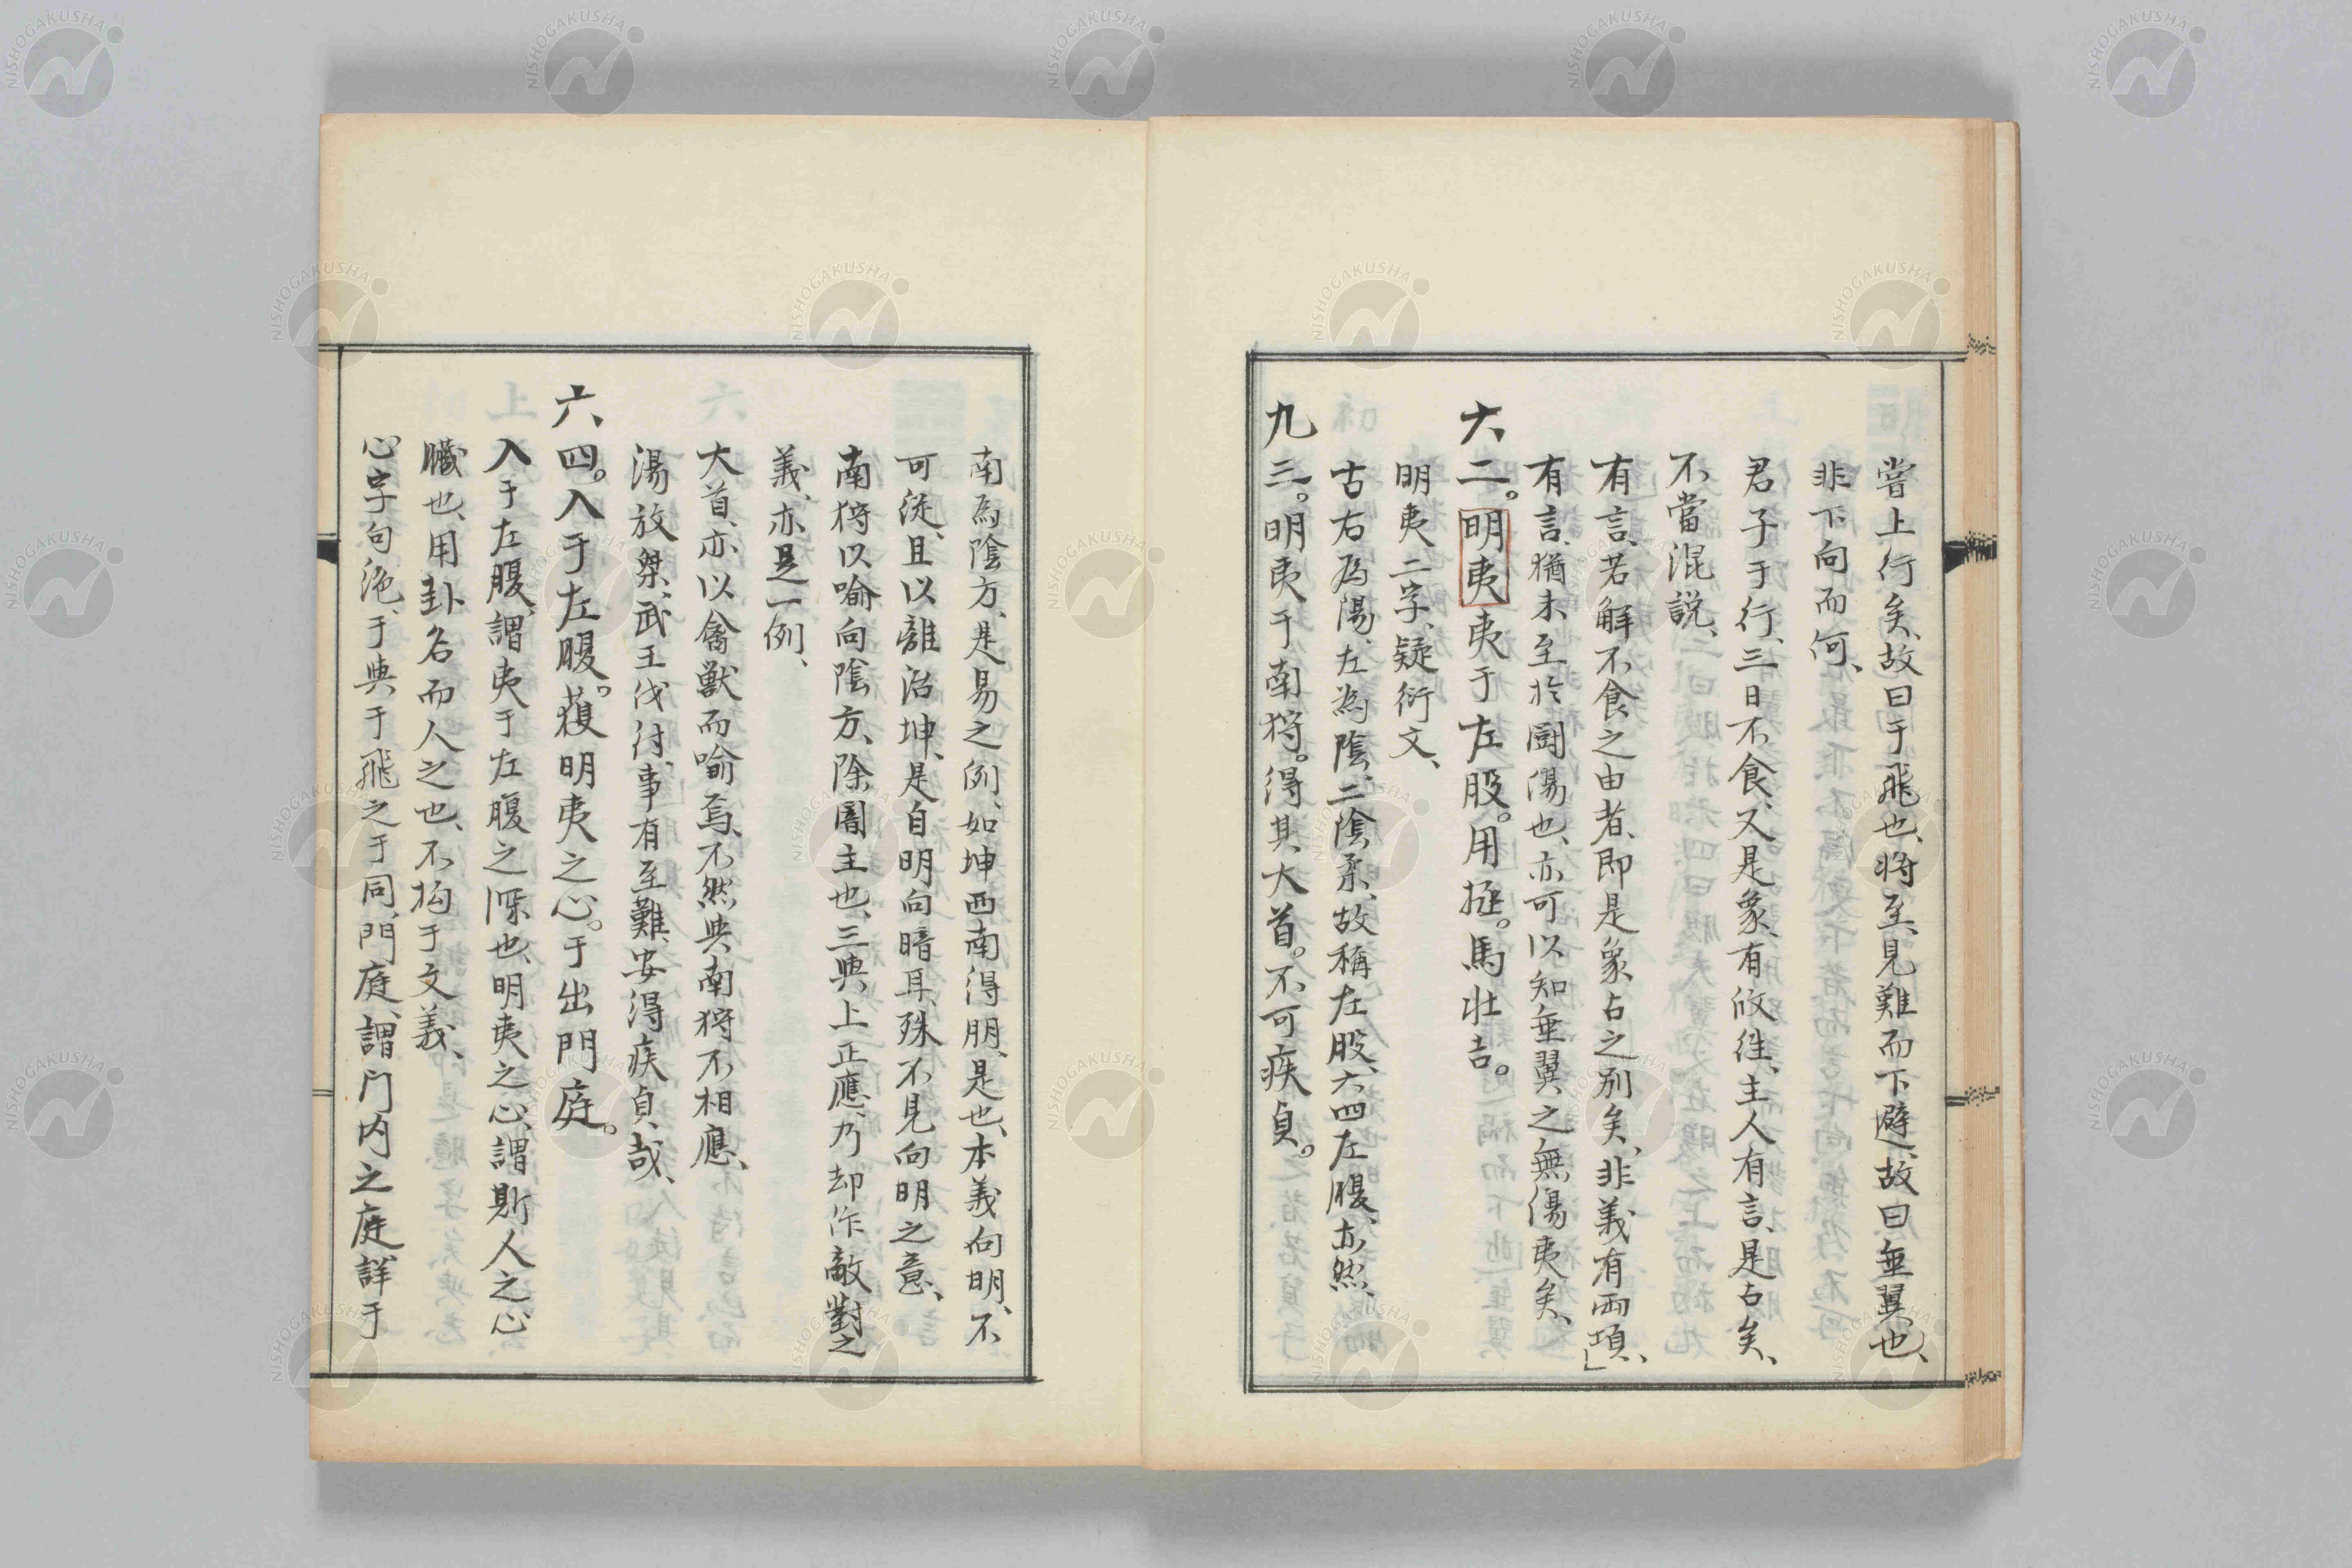 嘗上行矣、故曰于飛也、将至、見難而下避、故曰垂翼也、
非下向而何、
君子于行、三日不食、又是象、有攸往、主人有言、是占矣、
不當混説、
有言、若解不食之由者、即是象占之別矣、非義有兩項、」
有言、猶未至於鬪傷也、亦可以知垂翼之無傷夷矣、
六二。明夷夷于左股。用拯。馬壮吉。
明夷二字、疑衍文、
古右為陽、左為陰、二陰柔、故稱左股、六四左腹、亦然、
九三。明夷于南狩。得其大首。不可疾貞。
南為陰方、是易之例、如坤西南得朋、是也、本義向明、不
可従、且以離治坤、是自明向暗耳、殊不見向明之意、
南狩以喩向陰方、除闇主也、三與上正應、乃却作敵對之
義、亦是一例、
大首、亦以禽獣而喩焉、不然與南狩不相應、
湯放桀、武王伐紂、事有至難、安得疾貞哉、
六四。入于左腹。獲明夷之心。于出門庭。
入于左腹、謂夷于左腹之深也、明夷之心、謂斯人之心
臓也、用卦名而人之也、不拘于文義、
心字句絶、于與于飛之于同、門庭、謂门内之庭、詳于
NISHOGAKUSHA